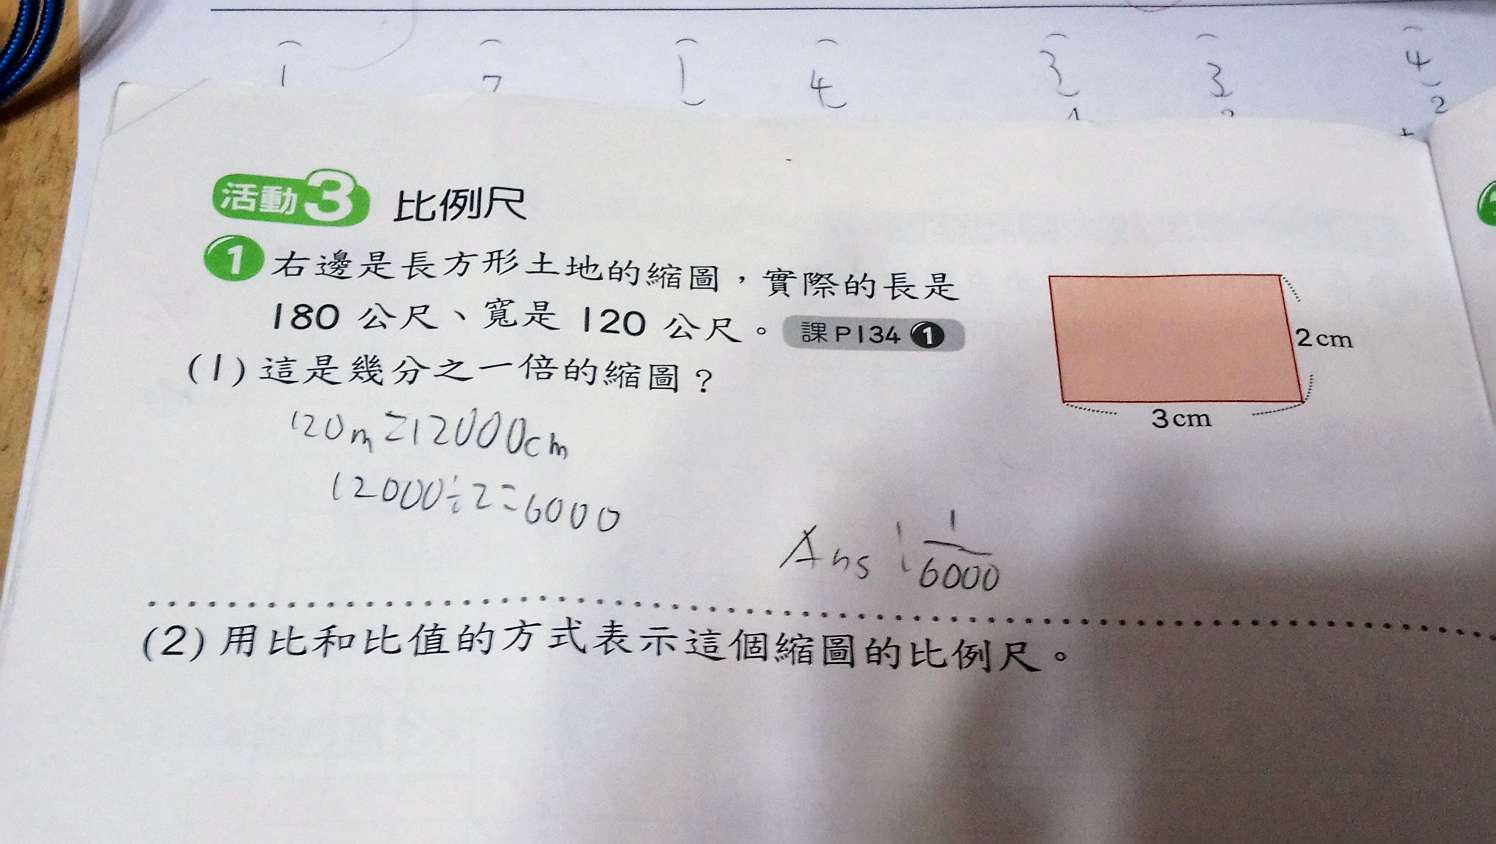 1 7 1 4 3 3 4
2
活動3 比例尺
1 右邊是長方形土地的縮圖，實際的長是
180 公尺、寬是 120 公尺。 課P134 1
2cm
3cm
(1) 這是幾分之一倍的縮圖？
120m=12000cm
12000÷2=6000
Ans: 1/6000
(2) 用比和比值的方式表示這個縮圖的比例尺。